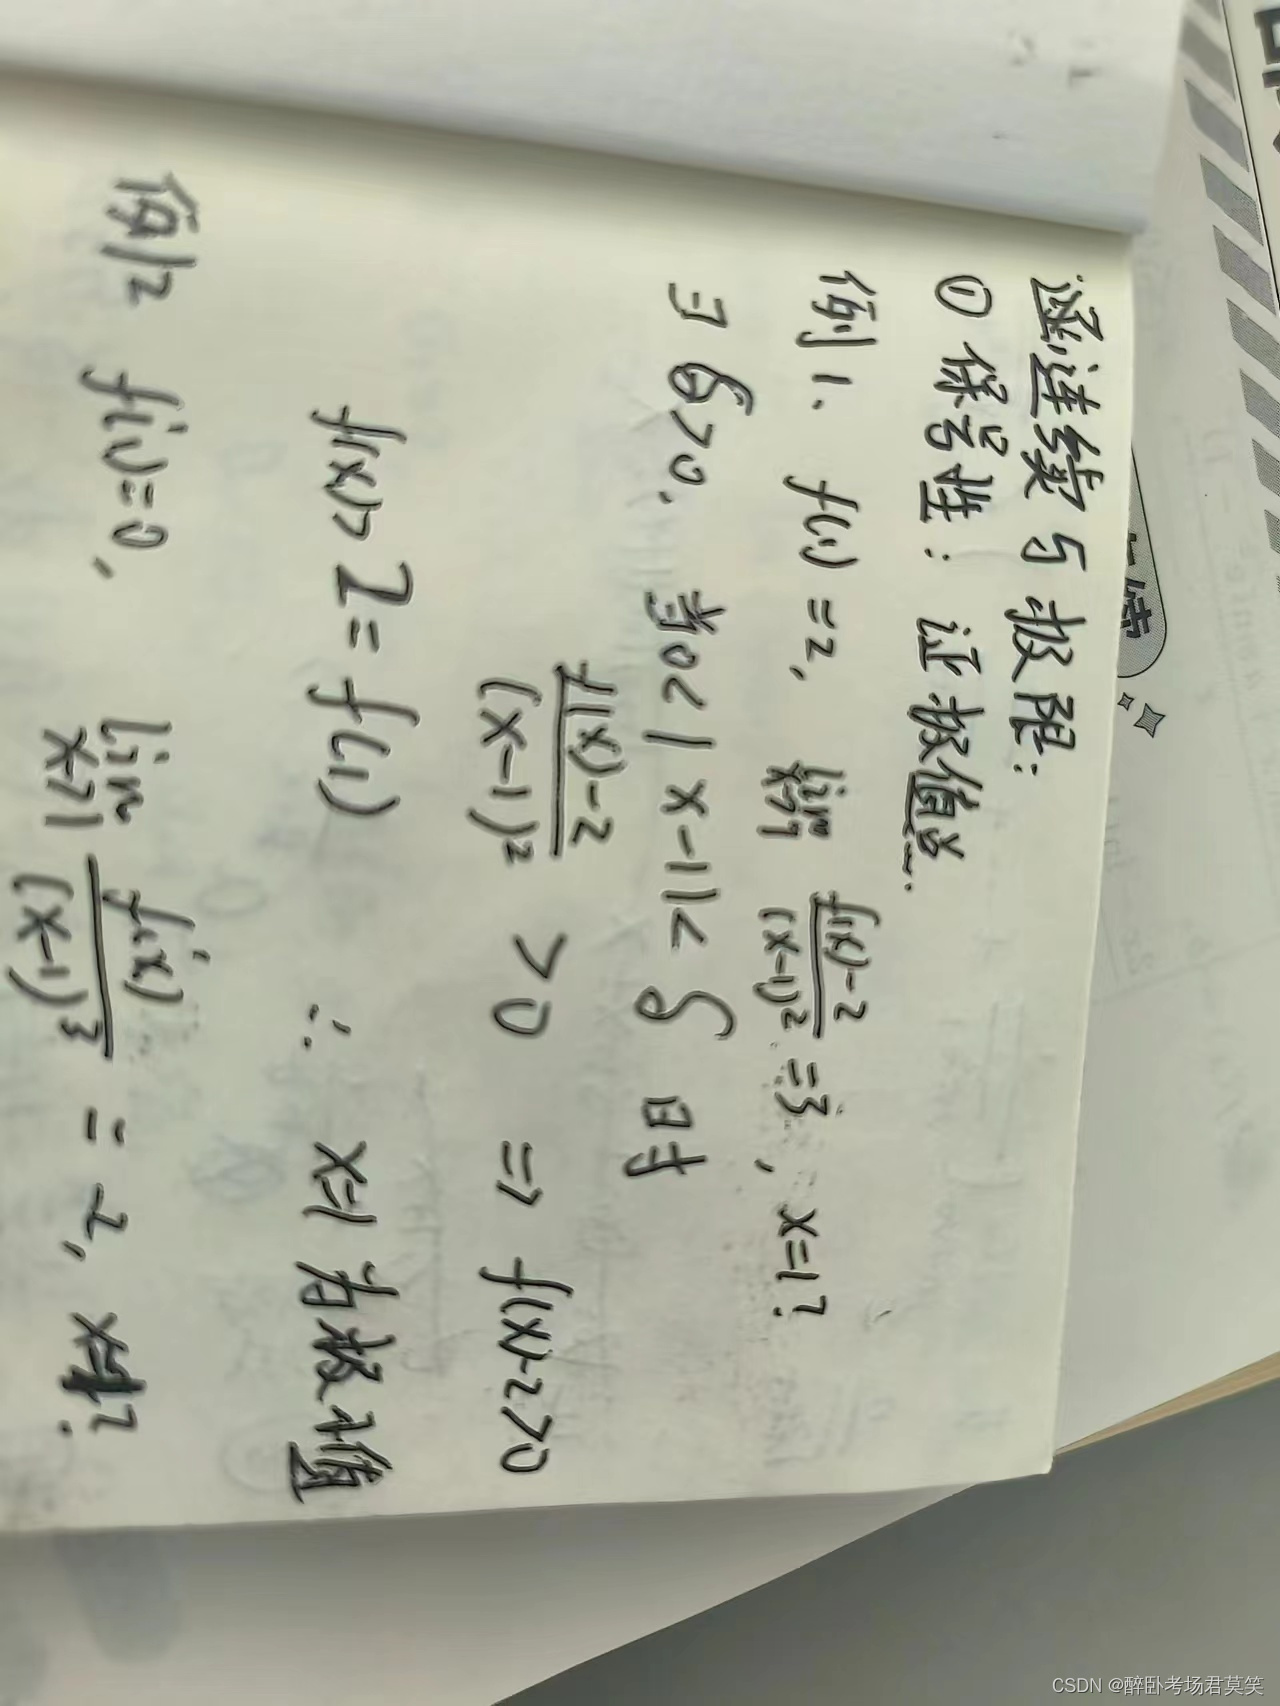 函连续与极限:
① 保号性: 证极值点.
例1. f(1) = 2, lim x→1 f(x)-2 / (x-1)² =3, x=1?
∃ δ>0, 当0<|x-1|<δ 时
f(x)-2 / (x-1)² >0 => f(x)-2>0
f(x)>2=f(1) ∴ x=1为极小值
例2 f'(1)=0, lim x→1 f'(x) / (x-1)³ = -2, x=1?
CSDN @醉卧考场君莫笑